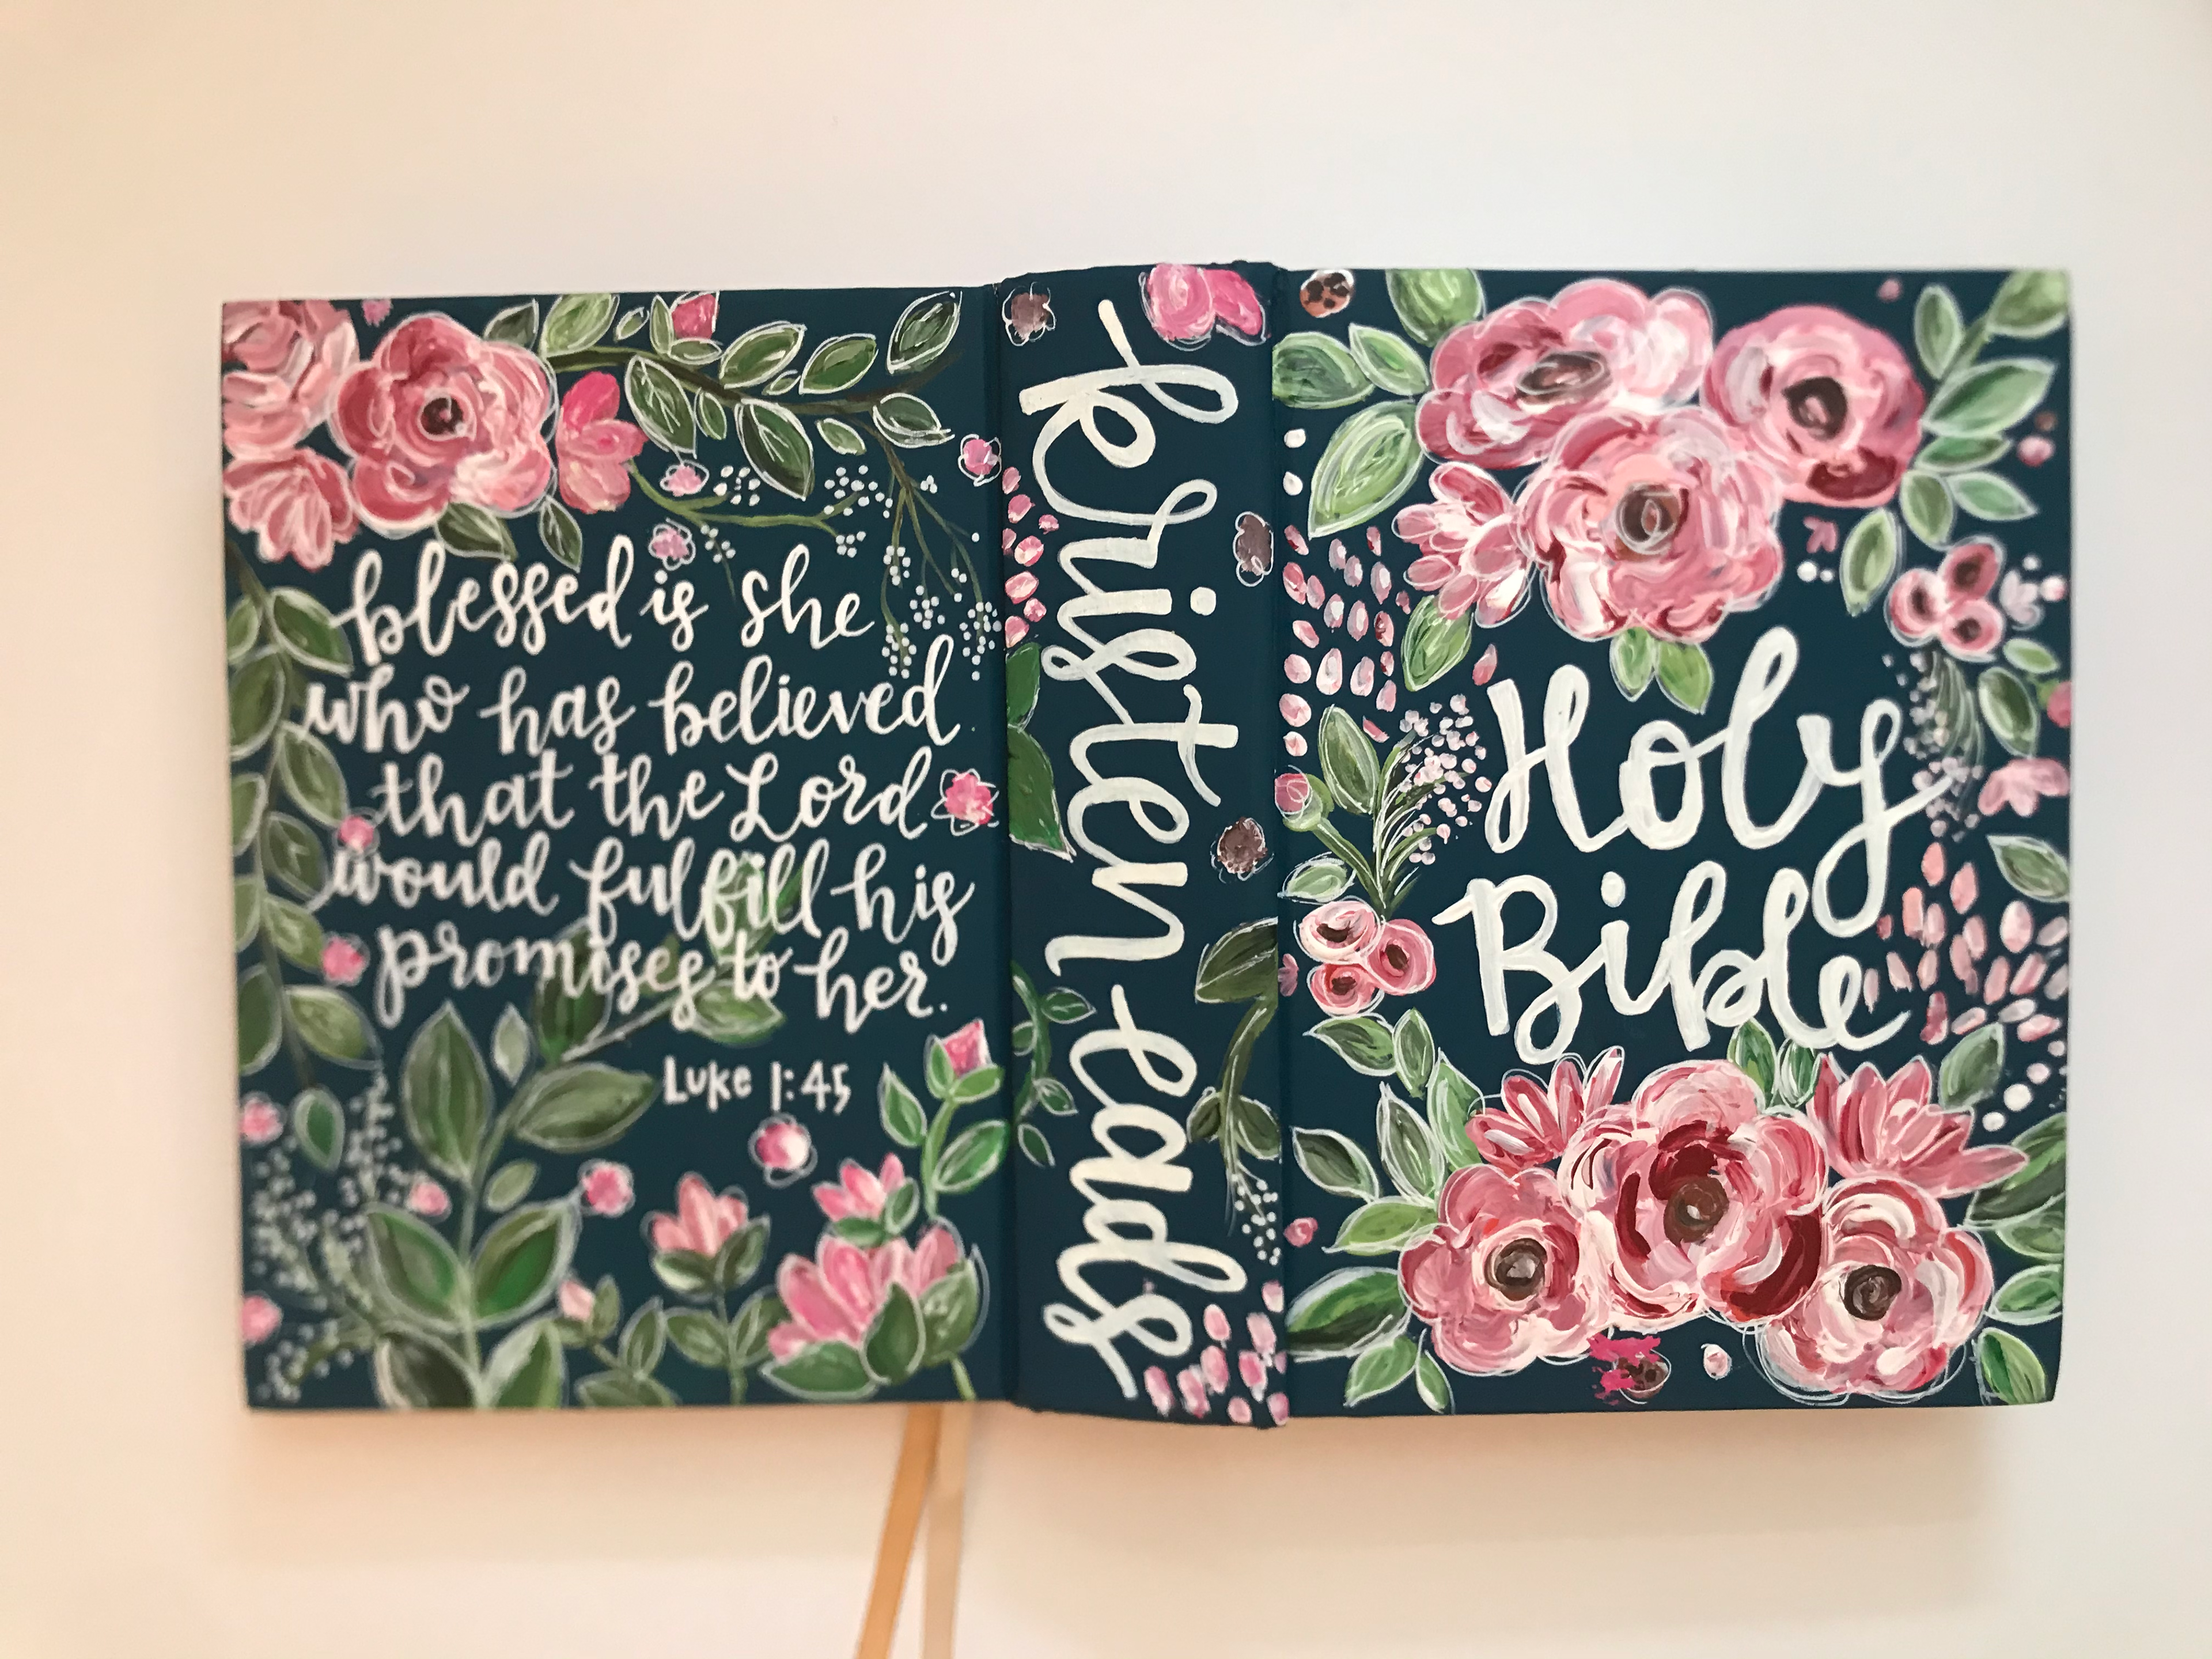 blessed is she
who has believed
that the Lord
would fulfill his
promises to her.
Luke 1:45
kristen eads
Holy
Bible